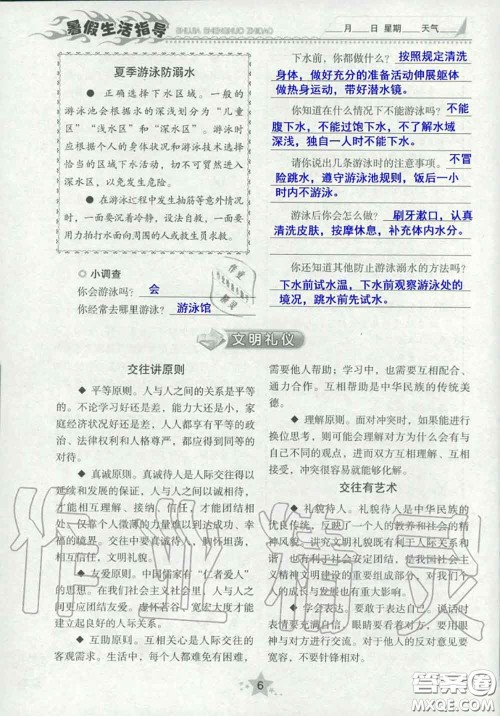 暑假生活指导
SHUJIA SHENGHUO ZHIDAO
月 日 星期 天气
夏季游泳防溺水
● 正确选择下水区域。一般的
游泳池会根据水的深浅划分为“儿童
区”“浅水区”和“深水区”。游泳时
应根据个人的身体状况和游泳技术选择
恰当的区域下水活动，切不可贸然进入
深水区，以免发生危险。
● 在游泳过程中发生抽筋等意外情况
时，一面要沉着冷静，设法自救，一面要用
力拍打水面向周围的人或救生员求救。
小调查
你会游泳吗？ 会
你经常去哪里游泳？ 游泳馆
下水前，你都做什么？ 按照规定清洗
身体，做好充分的准备活动伸展躯体
做热身运动，带好潜水镜。
你知道在什么情况下不能游泳吗？不能
腹下水，不能过饱下水，不了解水域
深浅，独自一人时不能下水
请你说出几条游泳时的注意事项。 不冒
险跳水，遵守游泳池规则，饭后一小
时内不游泳。
游泳后你会怎么做？ 刷牙漱口，认真
清洗皮肤，按摩休息，补充体内水分。
你还知道其他防止游泳溺水的方法吗？
下水前试水温，下水前观察游泳处的
境况，跳水前先试水。
文明礼仪
交往讲原则
◆ 平等原则。人与人之间的关系是平等
的。不论学习好还是差，能力大还是小，家
庭经济状况好还是差，人人都享有平等的政
治、法律权利和人格尊严，都应得到同等的
对待。
◆ 真诚原则。真诚待人是人际交往得以
延续和发展的保证，人与人之间以诚相待，
才能相互理解、接纳、信任，才能团结相
处一仅靠个人微薄的力量难以到达成功、幸
福的境界。交往中，真诚待人，胸怀坦荡，
相互信任，文明礼貌。
◆ 友爱原则。中国儒家有“仁者爱人”
的思想。在我们社会主义社会里，同志之间
更应团结友爱。虚怀若谷、宽宏大度才能建
立起良好的人际关系。
◆ 互助原则。互相关心是人际交往的
客观需求。生活中，每个人都不同程度地
需要他人帮助；学习中，也需要互相配合、
通力合作。互相帮助是中华民族的传统美
德。
◆ 理解原则。面对冲突时，如果能进行
换位思考，则可能会理解对方为什么会有与
自己不同的观点，进而双方互相理解、互相
接受，冲突很容易就能够化解。
交往有艺术
◆ 礼貌待人。礼貌待人是中华民族的
优良传统，反映了一个人的教养和社会的精
神风貌。讲究文明礼貌既有利于人际关系和
谐，也有利于社会安定团结，是我国社会主
义精神文明建设的重要组成部分，对我们个
人的成长与发展也有重大影响。
◆ 学会表达。要敢于表达自己。说话时
表情要自然，眼睛要看着对方，要用眼
神与对方进行交流。对于他人的反对意见要
宽容，不要针锋相对。
6
作业精灵
答案圈
MXQE.COM